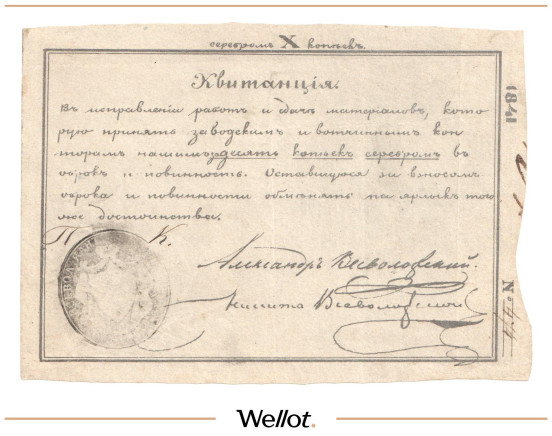 серебромъ X копѣекъ.
Квитанцiя.
Въ исправленiи работъ и сдачѣ матерiаловъ, кото
рую принять заводскимъ и вотчиннымъ кон
торамъ нашимъ десять копѣекъ серебромъ въ
оброкъ и повинность. Оставшуюся за взносомъ
оброка и повинности обмѣнять на ярлокъ того
же достоинства.
П. К.
Александръ Всеволожскiй.
Никита Всеволожской
1841
№
Wellot.